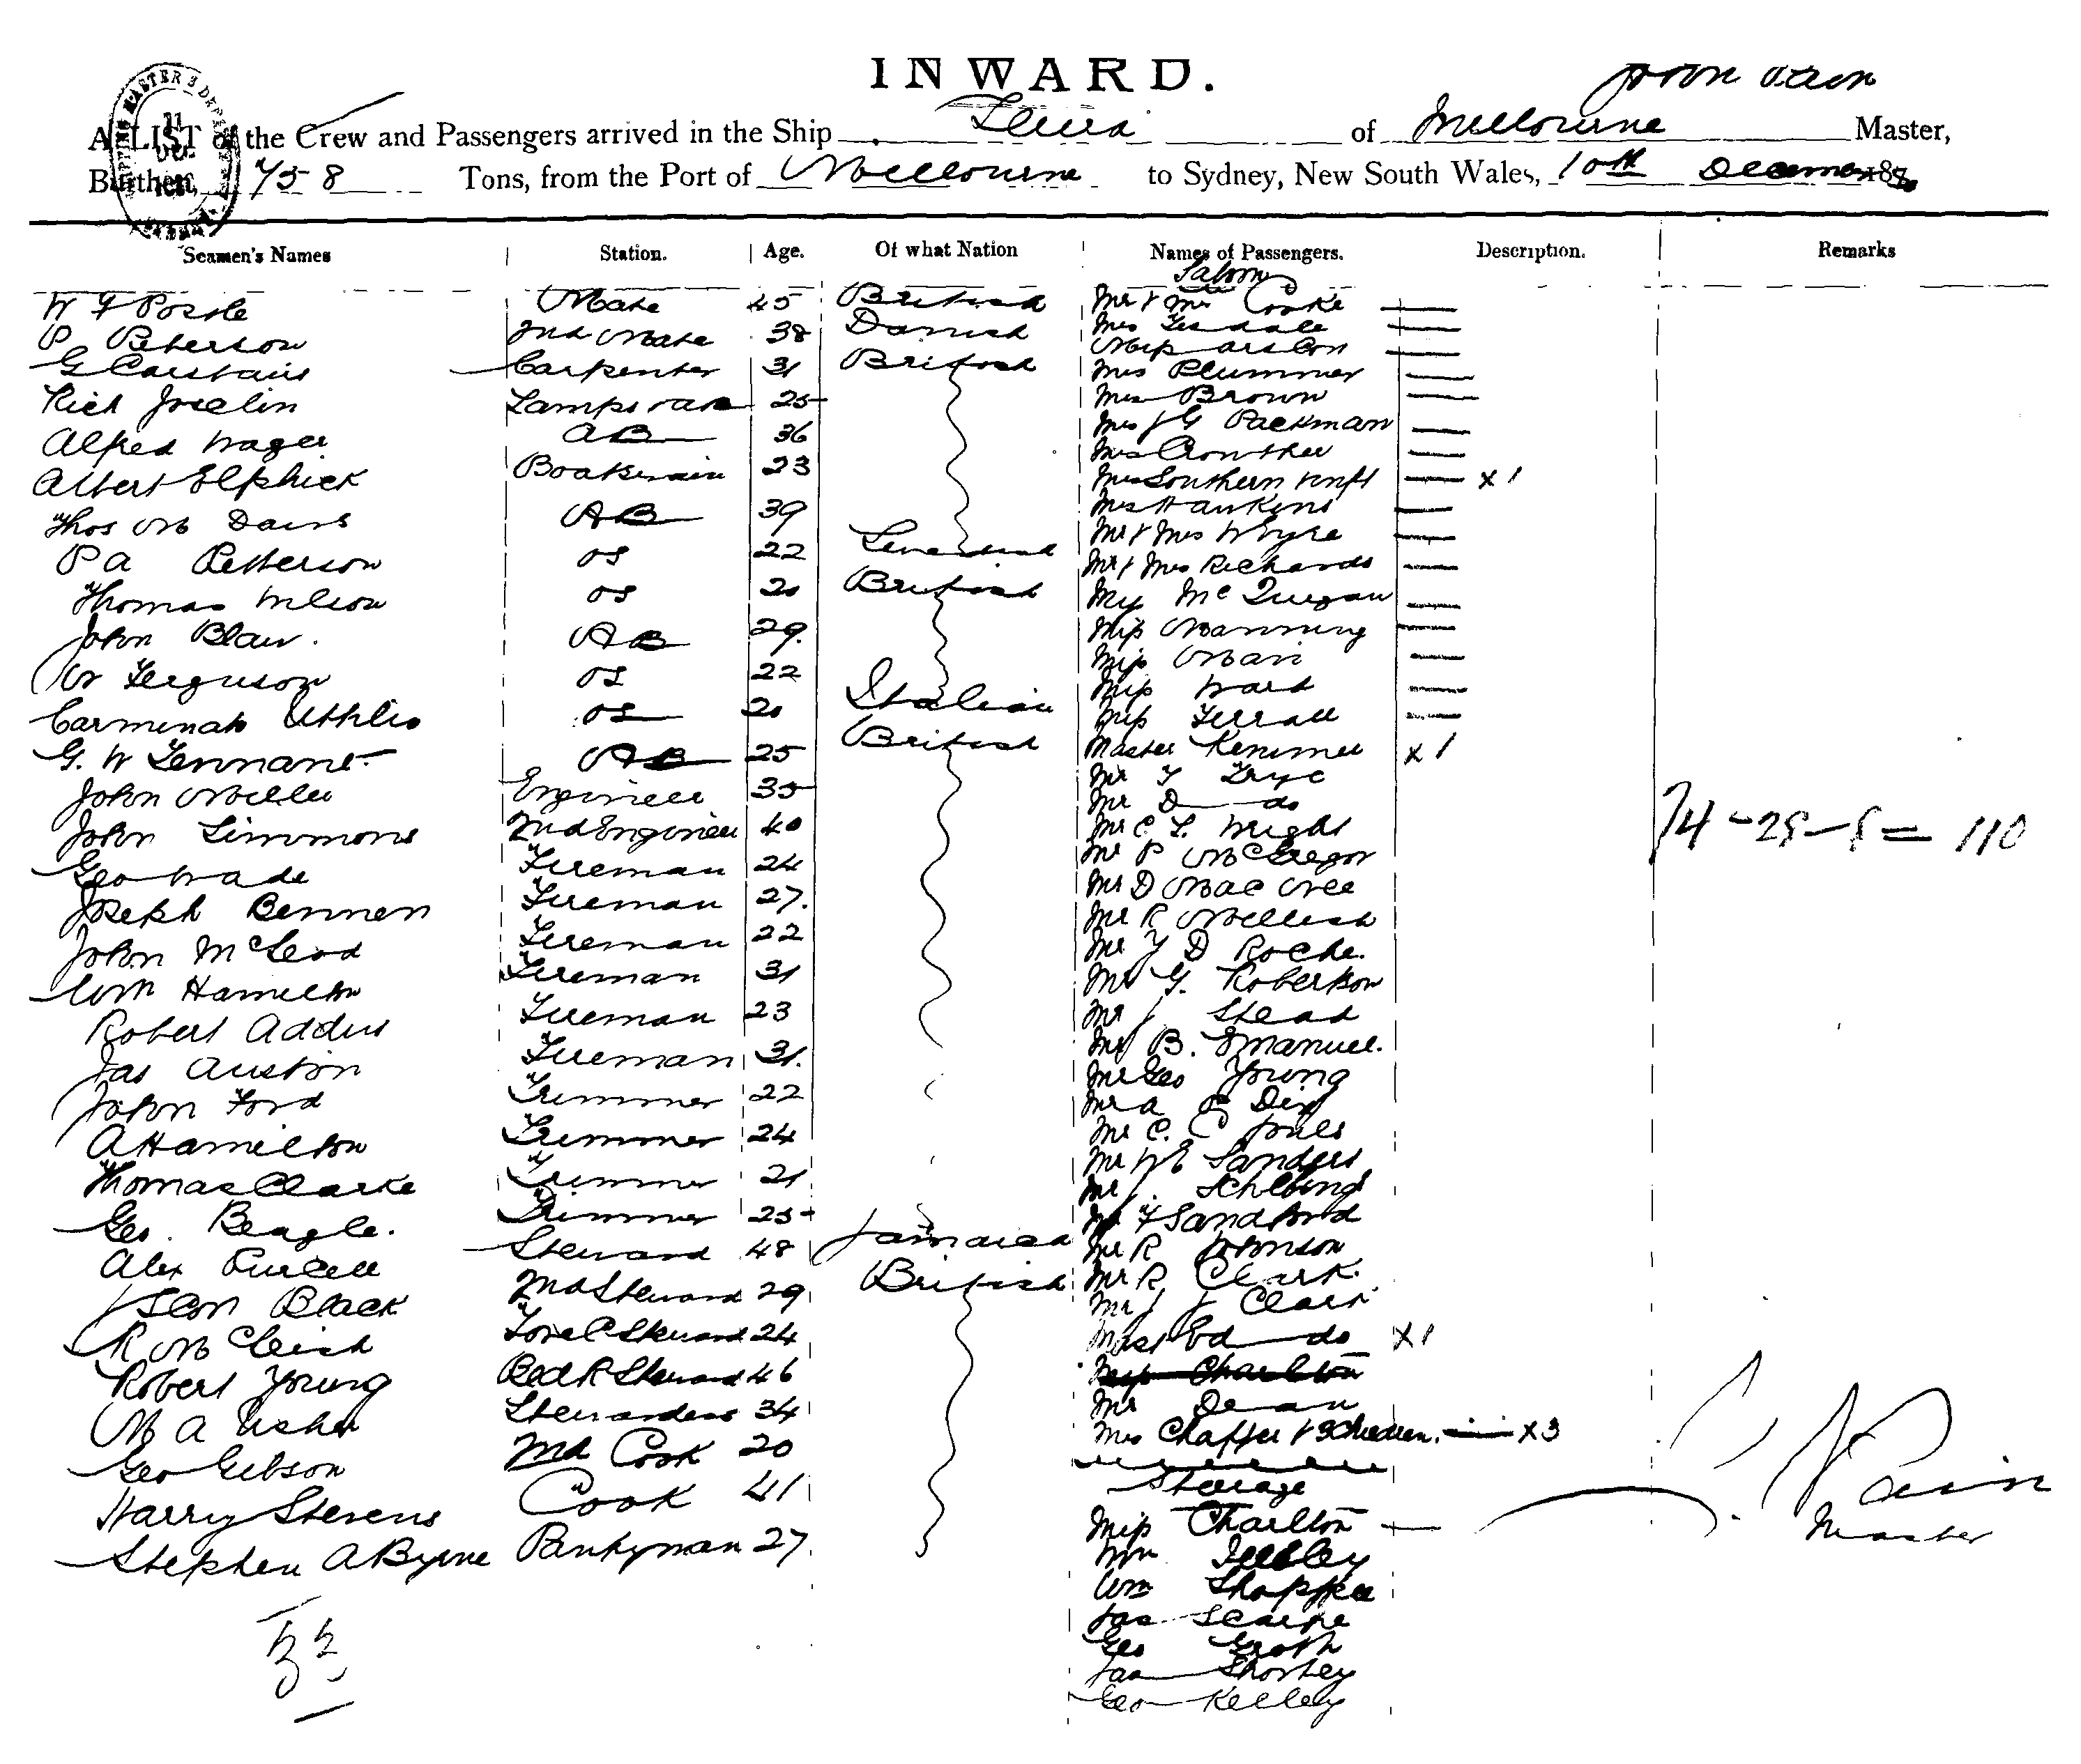 INWARD.
John Pain
A LIST of the Crew and Passengers arrived in the Ship of Melbourne Master,
Burthen, 758 Tons, from the Port of Melbourne to Sydney, New South Wales, 10th December 18
Seamen's Names Station. Age. Of what Nation Names of Passengers. Description. Remarks
Saloon
W F Mate 45 British Mr & Mrs Cooke
P Peterson 2nd Mate 38 Danish Mrs
G Carstairs Carpenter 31 British Mrs Plummer
Rich Joselin Lamps 25 Mrs Brown
Alfred Wager AB 36 Mrs J G Packman
Mrs Crowther
Albert Elphick Boatswain 23 Mrs Southern & Inft x 1
Thos M Davis AB 39 Mrs Hawkins
Mr & Mrs Whyte
P A Petterson OS 22 Swedish Mr & Mrs Richards
Thomas Wilson OS 20 British Miss
John Blair. AB 29. Miss Manning
Miss Mair
W Ferguson OS 22 Miss Ward
OS 20 Italian Miss
G. W Tennant AB 25 British Master x 1
Mr
John Miller Engineer 35 Mr D do
John Simmons 2nd Engineer 40 Mr C L Wright
Geo Wade Fireman 24 Mr P McGregor
Mr D
Joseph Bennen Fireman 27. Mr R Mellish
John McLeod Fireman 22 Mr D Roche.
Wm Hamilton Fireman 31 Mr G. Robertson
Robert Addis Fireman 23 Mr J Stead
Mr B. Emanuel.
Jas Austin Fireman 31. Mr Geo Young
John Ford Trimmer 22 Mr A Dix
A Hamilton Trimmer 24 Mr C. C Jones
Mr W E Sanders
Thomas Clarke Trimmer 21 Mr J.
Geo. Beagle. Trimmer 25 Mr F Sandford
Alex Purcell Steward 48 Jamaica Mr R Johnson
Mr R Clark.
Black 2nd Steward 29 British Mr J J Clark
R McLeish Fore C Steward 24 Mast Ed do x 1
Robert Young Bed R Steward 46 Miss Charlton
Mr Dean
M A Usher Stewardess 34 Mrs Chaffer & 3 Children. x 3
Geo Gibson 2nd Cook 20
Steerage
Harry Stevens Cook 41 Miss Charlton
Stephen A Byrne Pantryman 27. Wm
Wm
Jas
Geo Groth
Jas Shortey
Geo Kelley
74 - 28 - 8 = 110
J Pain
Master